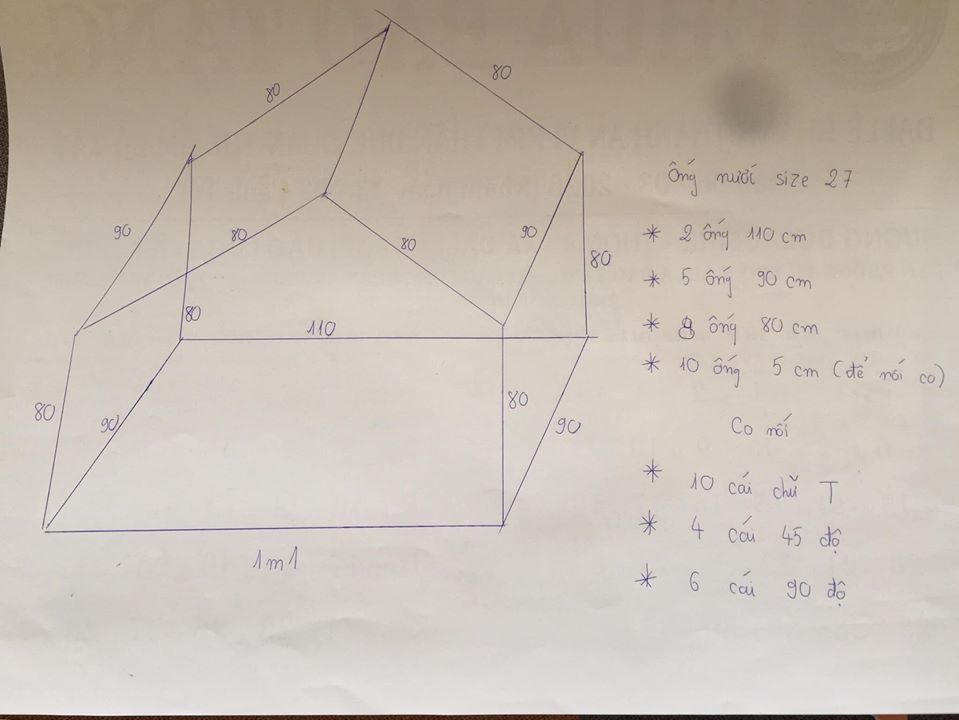 80
80
90
80
80
90
80
80
110
80
90
80
90
1m1
Ống nước size 27
* 2 ống 110 cm
* 5 ống 90 cm
* 8 ống 80 cm
* 10 ống 5 cm (để nối co)
Co nối
* 10 cái chữ T
* 4 cái 45 độ
* 6 cái 90 độ